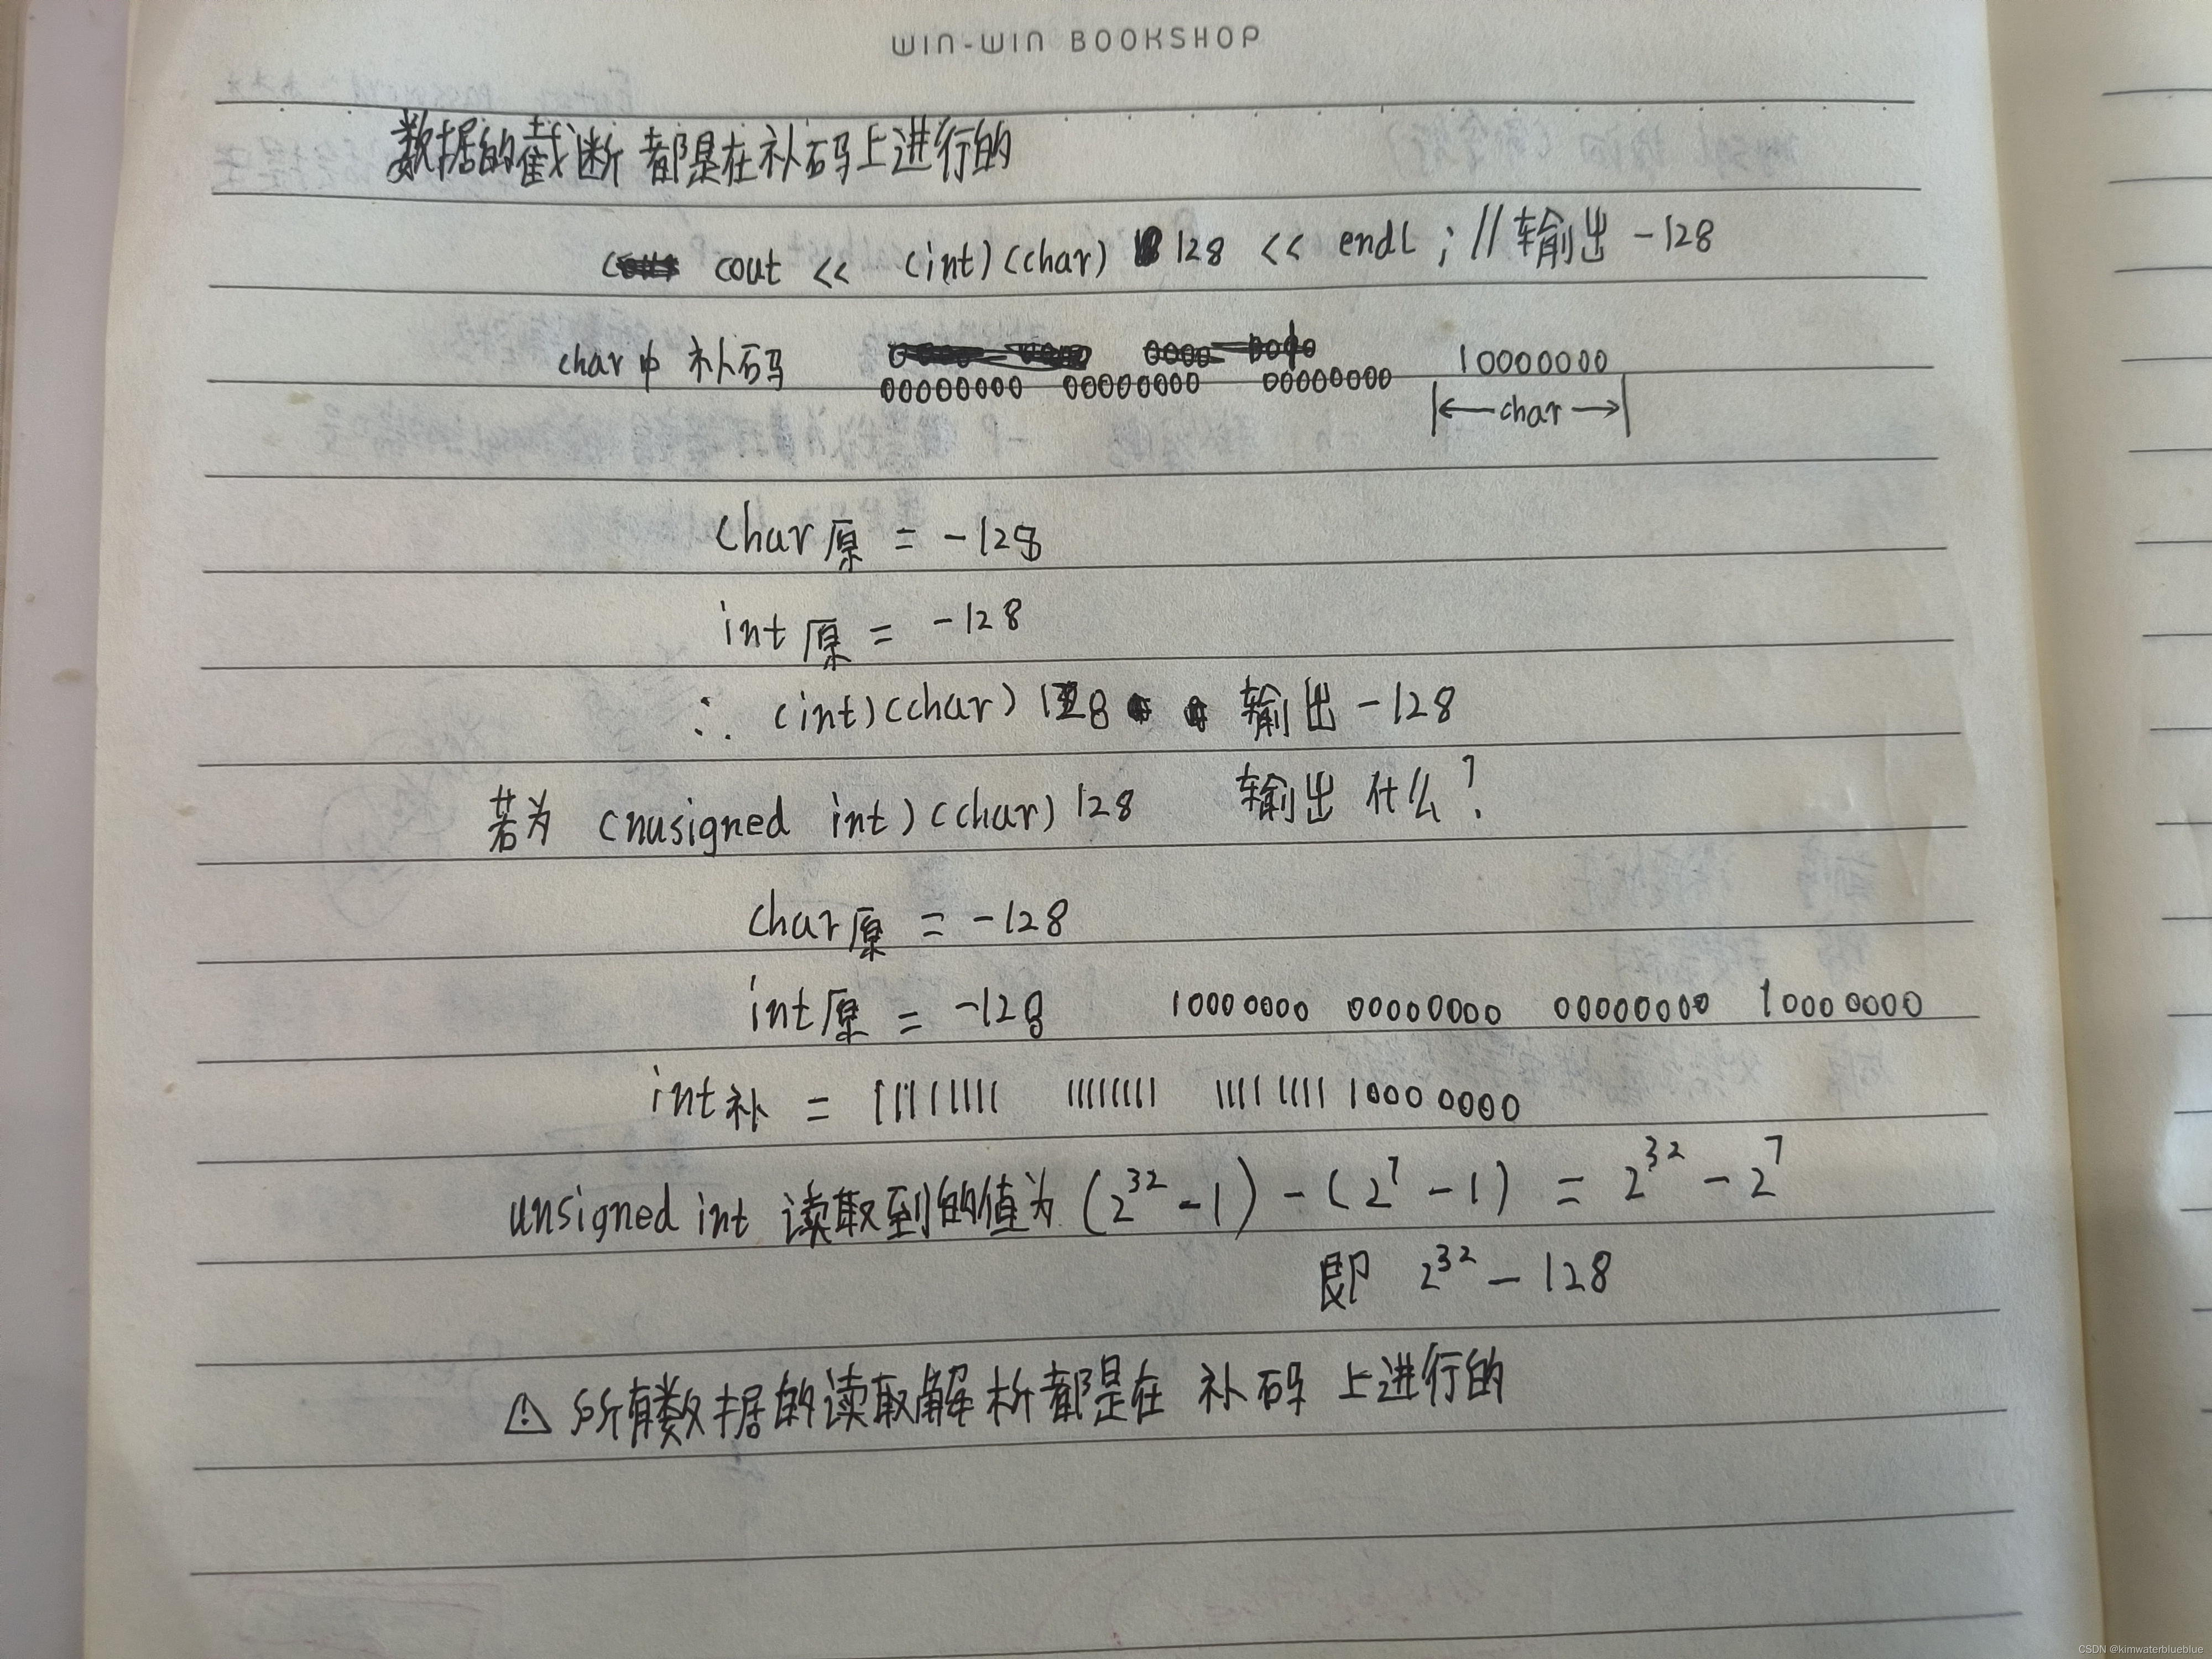 WIN-WIN BOOKSHOP
数据的截断 都是在补码上进行的
cout << (int)(char) 128 << endl ; // 输出 -128
char中 补码 10000000
00000000 00000000 00000000
char
char原 = -128
int原 = -128
∴ (int)(char) 128 输出 -128
若为 (nusigned int)(char) 128 输出 什么?
char原 = -128
int原 = -128 1000 0000 00000000 00000000 1000 0000
int补 = 11111111 11111111 1111 1111 1000 0000
unsigned int 读取到的值为 (2^32 - 1) - (2^7 - 1) = 2^32 - 2^7
即 2^32 - 128
⚠ 所有数据的读取解析都是在 补码 上进行的
CSDN @kimwaterblueblue